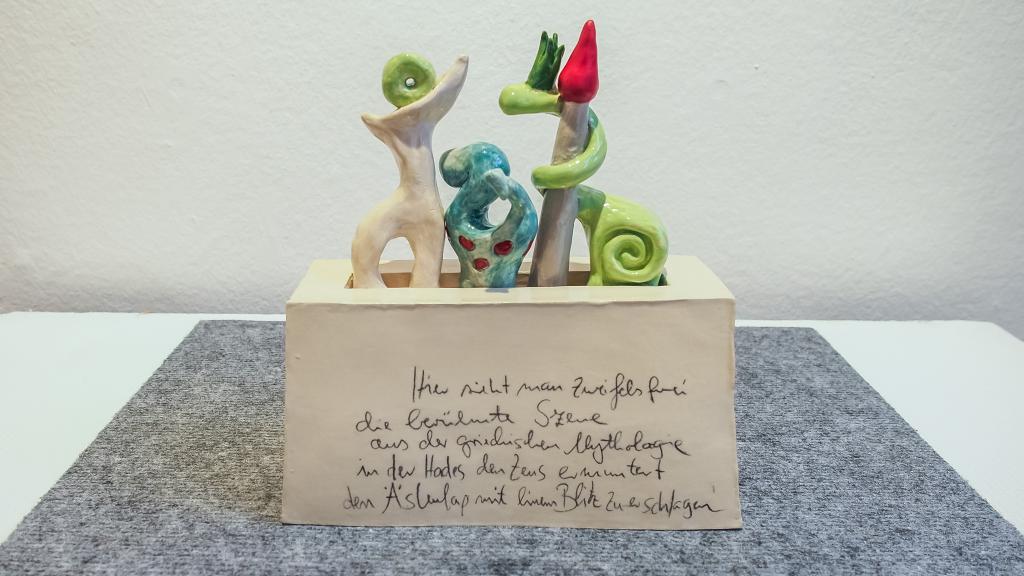 Hier sieht man zweifelsfrei
die berühmte Szene
aus der griechischen Mythologie
in der Hades den Zeus ermuntert
den Äskulap mit einem Blitz zu erschlagen